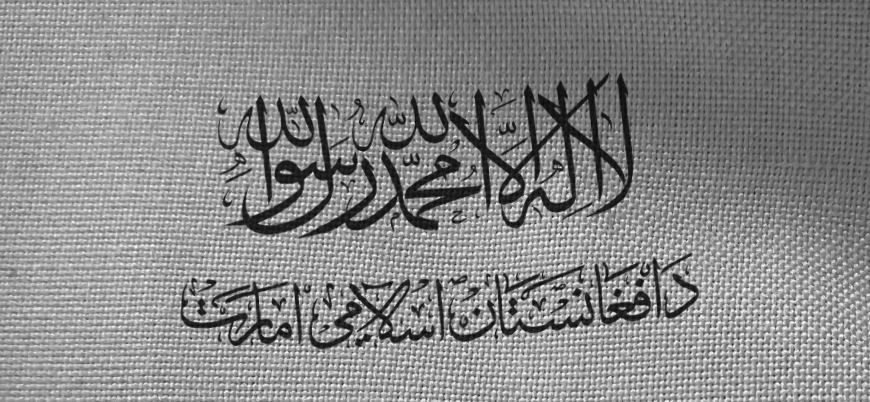 لا إله إلا الله محمد رسول الله
د افغانستان اسلامی امارت